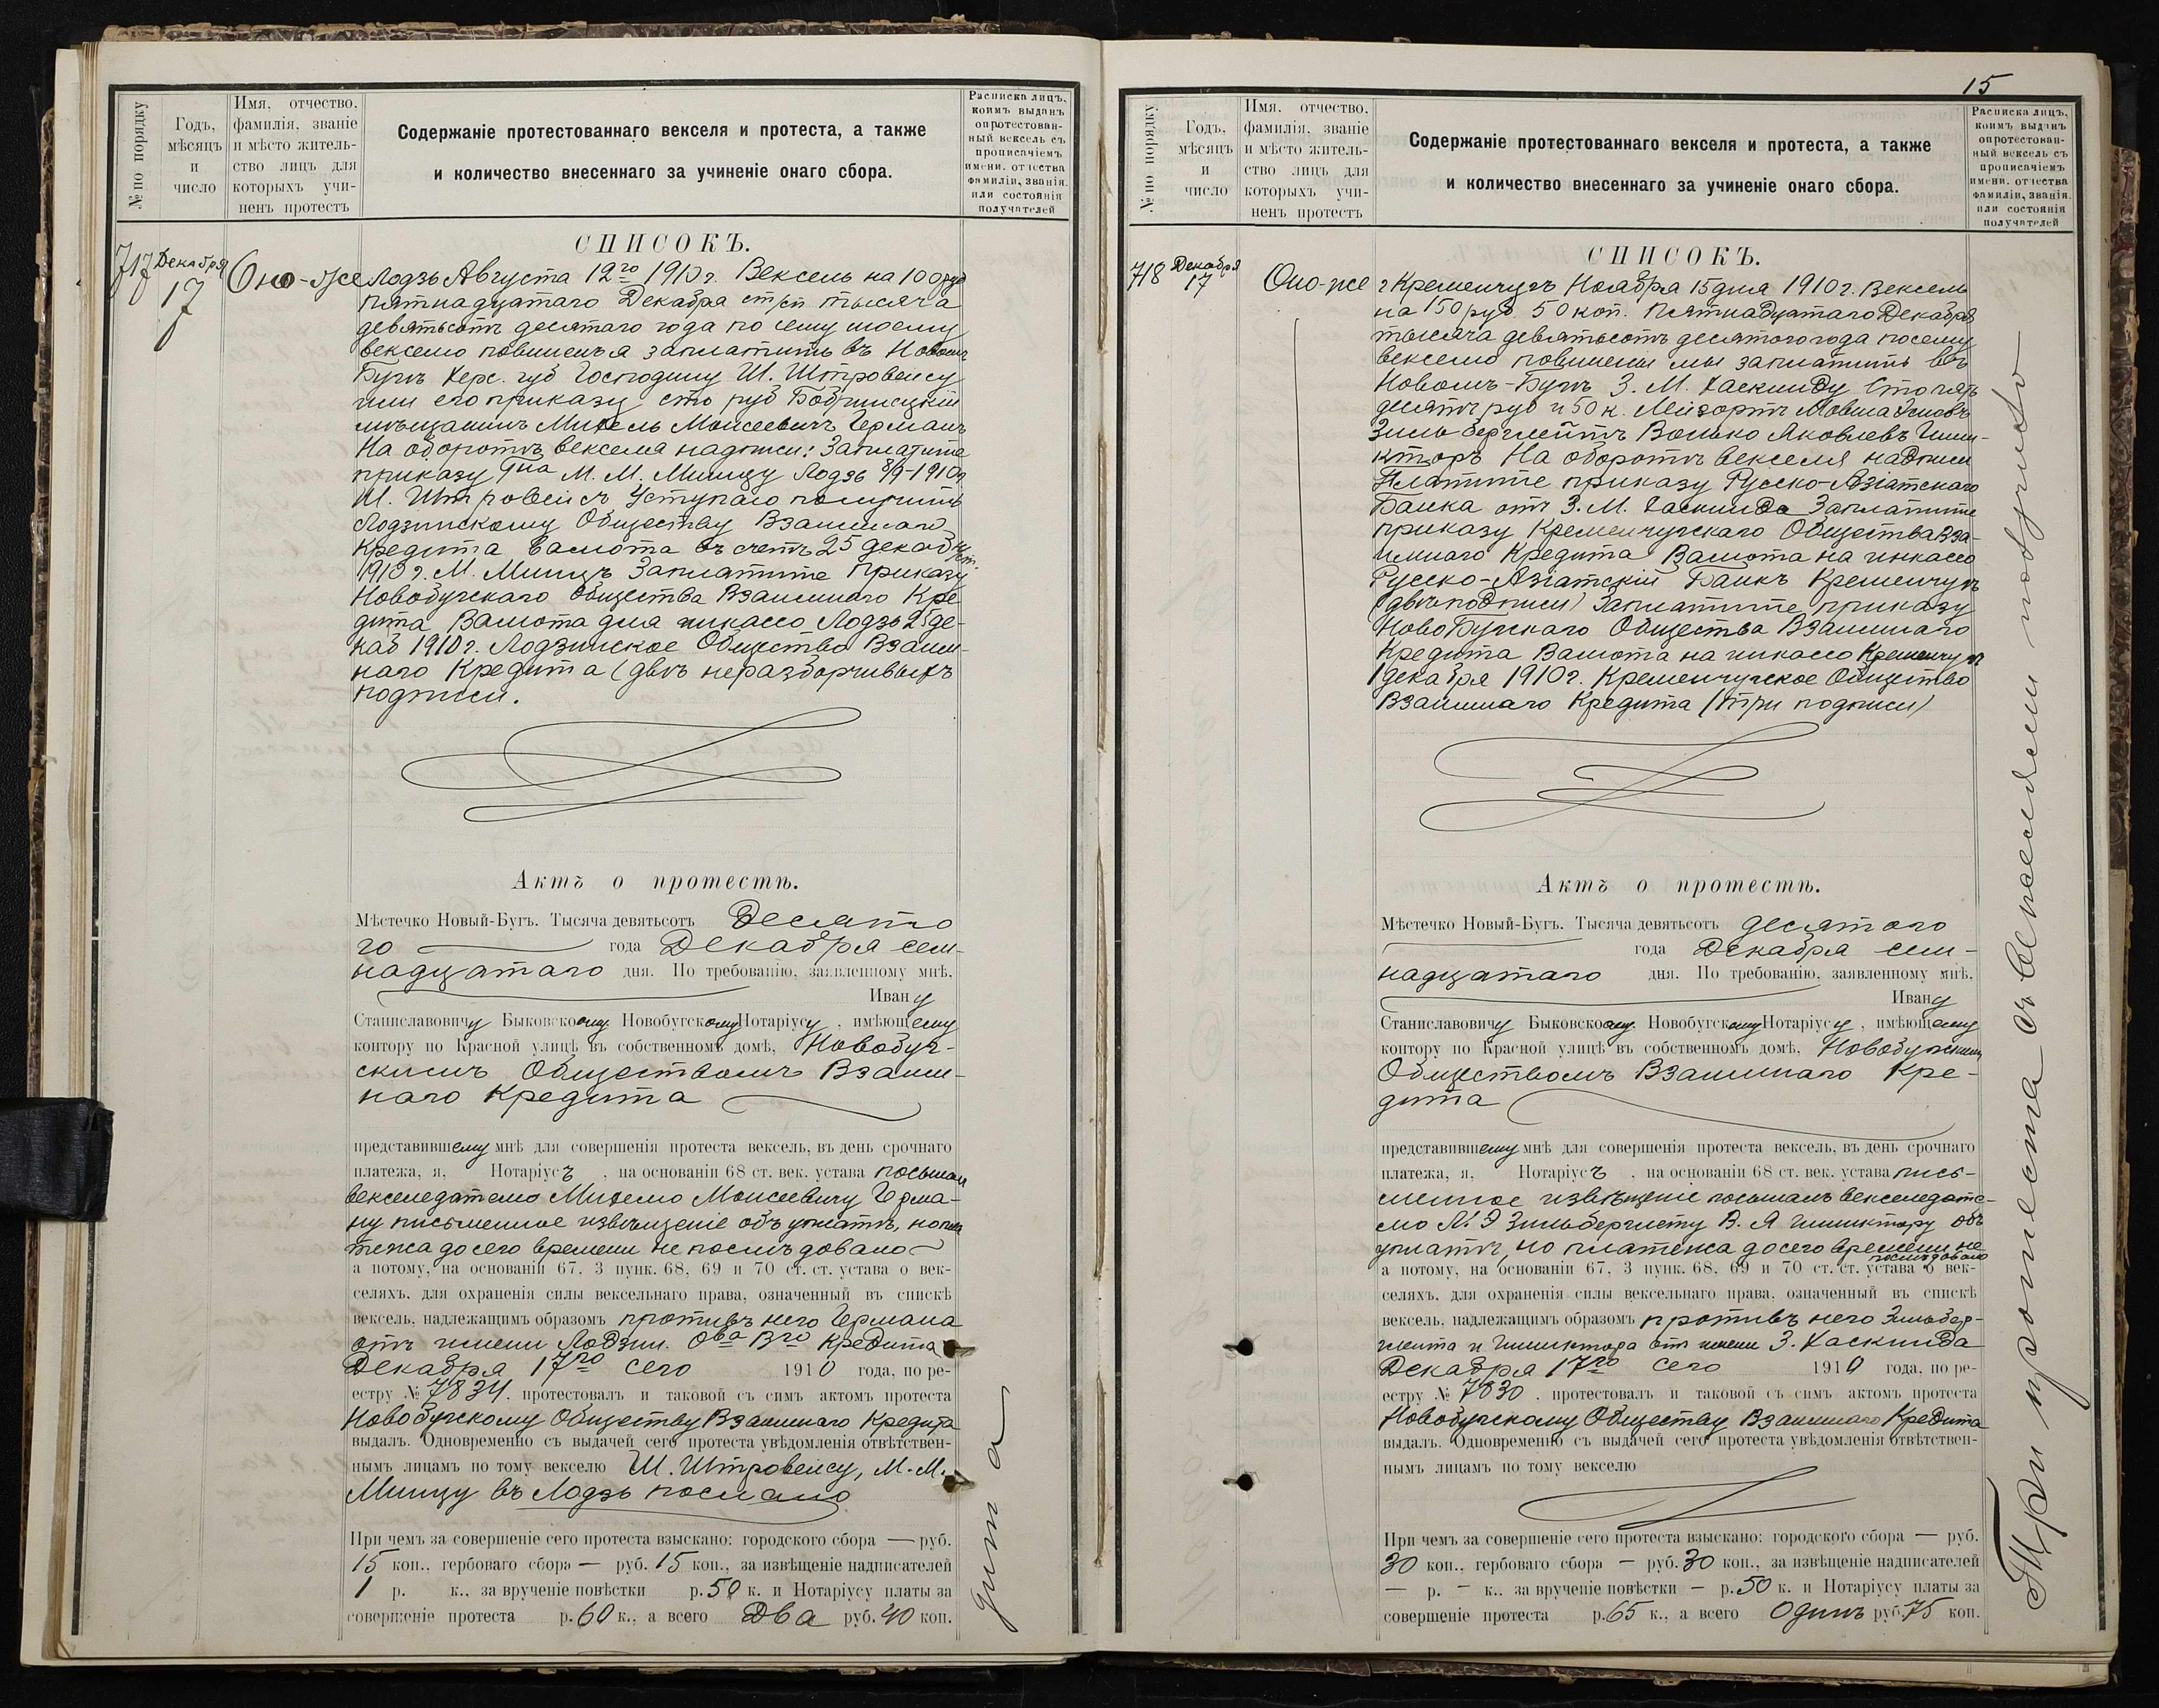 № по порядку
Годъ,
мѣсяцъ
и
число
Имя, отчество,
фамилія, званіе
и мѣсто житель-
ство лицъ для
которыхъ учи-
ненъ протестъ
Содержаніе протестованнаго векселя и протеста, а также
и количество внесеннаго за учиненіе онаго сбора.
Расписка лицъ,
коимъ выданъ
опротестован-
ный вексель съ
прописаніемъ
имени, отчества
фамиліи, званія,
или состоянія
получателей
СПИСОКЪ.
717 Декабря 17
Оно-же
Лодзь Августа 12го 1910 г. Вексель на 100 руб
пятнадцатаго Декабря ст/ст тысяча
девятьсотъ десятаго года по сему моему
векселю повиненъ я заплатить въ Новомъ
Бугѣ Херс. губ Господину Ш. Штровейсу
или его приказу сто руб Бобринецкій
мѣщанинъ Михель Моисеевичъ Германъ
На оборотѣ векселя надписи: Заплатите
приказу Гна М. М. Минцу Лодзь 8/9-1910г
Ш. Штровейсъ Уступаю получить
Лодзинскому Обществу Взаимнаго
Кредита Валюта въ счетъ 25 декаб н/ст.
1910 г. М. Минцъ Заплатите приказу
Новобугскаго Общества Взаимнаго Кре-
дита Валюта для инкассо Лодзь 25 де-
каб 1910 г. Лодзинское Общество Взаим-
наго Кредита (двѣ неразборчивыхъ
подписи.
Актъ о протестѣ.
Мѣстечко Новый-Бугъ. Тысяча девятьсотъ Десято
го года Декабря сем-
надцатаго дня. По требованію, заявленному мнѣ,
Ивану
Станиславовичу Быковскому Новобугскому Нотаріусу, имѣющему
контору по Красной улицѣ въ собственномъ домѣ, Новобуг-
скимъ Обществомъ Взаим-
наго Кредита
представившему мнѣ для совершенія протеста вексель, въ день срочнаго
платежа, я, Нотаріусъ, на основаніи 68 ст. век. устава посылалъ
векселедателю Михелю Моисеевичу Герма-
ну письменное извѣщеніе объ уплатѣ, но пла
тежа до сего времени не послѣдовало
а потому, на основаніи 67, 3 пунк. 68, 69 и 70 ст. ст. устава о век-
селяхъ, для охраненія силы вексельнаго права, означенный въ спискѣ
вексель, надлежащимъ образомъ противъ него Германа
отъ имени Лодзин. Ова Вго Кредита
Декабря 17го сего 1910 года, по ре-
естру № 7834. протестовалъ и таковой съ симъ актомъ протеста
Новобугскому Обществу Взаимнаго Кредита
выдалъ. Одновременно съ выдачей сего протеста увѣдомленія отвѣтствен-
нымъ лицамъ по тому векселю Ш. Штровейсу, М. М.
Минцу въ Лодзь послано
При чемъ за совершеніе сего протеста взыскано: городского сбора — руб.
15 коп., гербоваго сбора — руб. 15 коп., за извѣщеніе надписателей
1 р. к., за врученіе повѣстки р. 50 к. и Нотаріусу платы за
совершеніе протеста р. 60 к., а всего Два руб. 40 коп.
дита
15
№ по порядку
Годъ,
мѣсяцъ
и
число
Имя, отчество,
фамилія, званіе
и мѣсто житель-
ство лицъ для
которыхъ учи-
ненъ протестъ
Содержаніе протестованнаго векселя и протеста, а также
и количество внесеннаго за учиненіе онаго сбора.
Расписка лицъ,
коимъ выданъ
опротестован-
ный вексель съ
прописаніемъ
имени, отчества
фамиліи, званія,
или состоянія
получателей
СПИСОКЪ.
718 Декабря 17
Оно-же
г Кременчугъ Ноября 15 дня 1910 г. Вексель
на 150 руб. 50 коп. Пятнадцатаго Декабря
тысяча девятьсотъ десятого года по сему
векселю повинны мы заплатить въ
Новомъ-Бугѣ З. М. Хаскинду Сто пять
десятъ руб и 50 к. Мовша
Зильберглейтъ Волько Яковлевъ Гиши-
кторъ На оборотѣ векселя надписи
Платите приказу Русско-Азіатскаго
Банка отъ З. М. Хаскинда Заплатите
приказу Кременчугскаго Общества Вза-
имнаго Кредита Валюта на инкассо
Русско-Азіатскій Банкъ Кременчугъ
(двѣ подписи) Заплатите приказу
НовоБугскаго Общества Взаимнаго
Кредита Валюта на инкассо Кременчугъ
1 декабря 1910 г. Кременчугское Общество
Взаимнаго Кредита (три подписи)
Актъ о протестѣ.
Мѣстечко Новый-Бугъ. Тысяча девятьсотъ десятаго
года Декабря сем-
надцатаго дня. По требованію, заявленному мнѣ,
Ивану
Станиславовичу Быковскому Новобугскому Нотаріусу, имѣющему
контору по Красной улицѣ въ собственномъ домѣ, Новобугскимъ
Обществомъ Взаимнаго Кре-
дита
представившему мнѣ для совершенія протеста вексель, въ день срочнаго
платежа, я, Нотаріусъ, на основаніи 68 ст. век. устава пись-
менное извѣщеніе посылалъ векселедате-
лю Зильберглету В. Я Гишиктору объ
уплатѣ, но платежа до сего времени не
послѣдовало
а потому, на основаніи 67, 3 пунк. 68, 69 и 70 ст. ст. устава о век-
селяхъ, для охраненія силы вексельнаго права, означенный въ спискѣ
вексель, надлежащимъ образомъ противъ него Зильбер-
глейта и Гишиктора отъ имени З. Хаскинда
Декабря 17го сего 1910 года, по ре-
естру № 7830. протестовалъ и таковой съ симъ актомъ протеста
Новобугскому Обществу Взаимнаго Кредита
выдалъ. Одновременно съ выдачей сего протеста увѣдомленія отвѣтствен-
нымъ лицамъ по тому векселю
При чемъ за совершеніе сего протеста взыскано: городского сбора — руб.
30 коп., гербоваго сбора — руб. 30 коп., за извѣщеніе надписателей
— р. — к., за врученіе повѣстки — р. 50 к. и Нотаріусу платы за
совершеніе протеста р. 65 к., а всего Одинъ руб. 75 коп.
Три протеста съ векселями получило